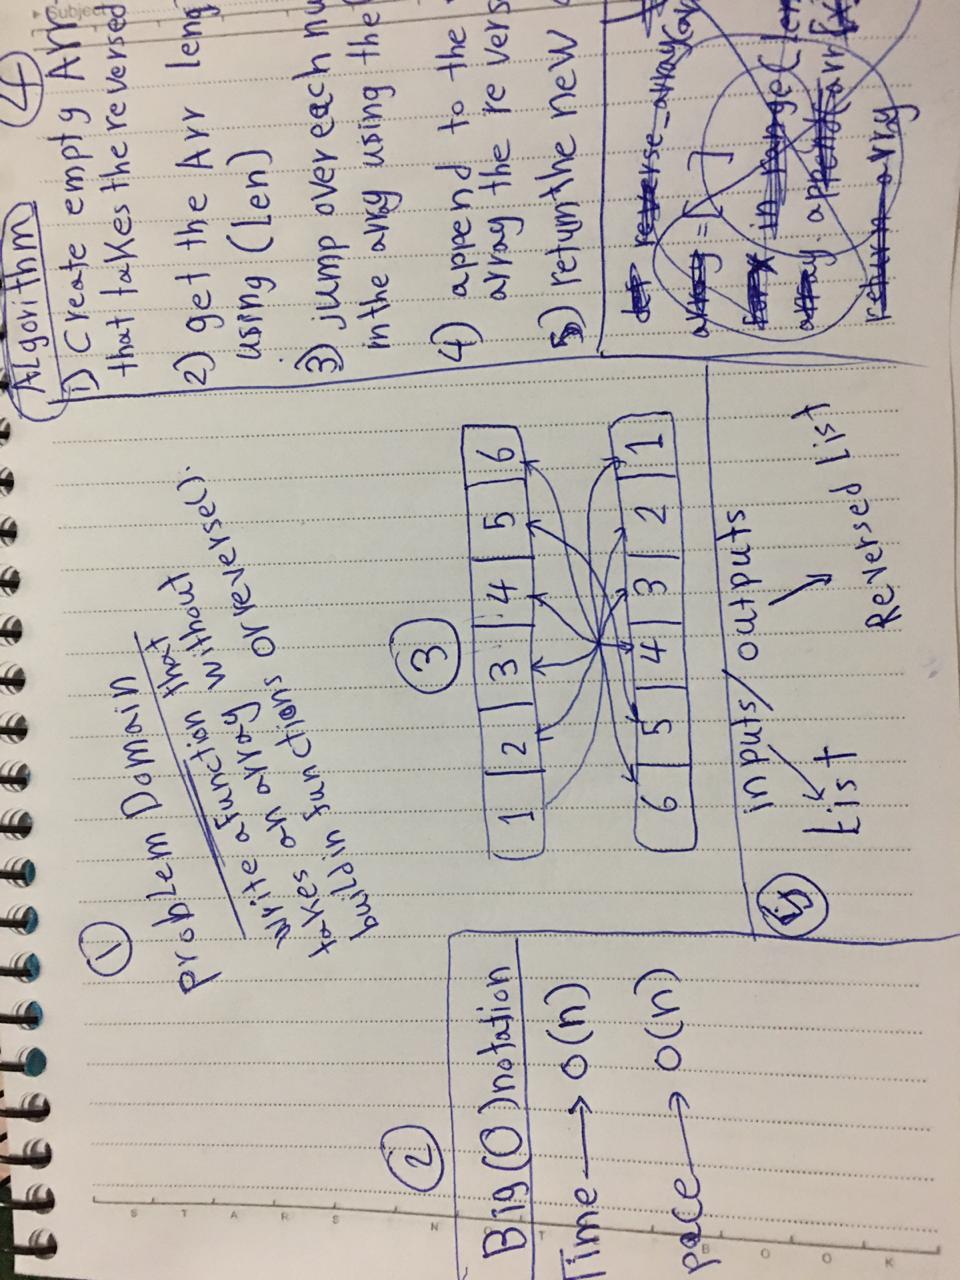 1
problem Domain
write a function that
takes an array without
buildin functions or reverse().
2
Big(O)notation
Time → O(n)
pace → O(n)
3
1 2 3 4 5 6
6 5 4 3 2 1
inputs/outputs
List
Reversed List
4
Algorithm
1) Create empty Arr
that takes the reversed
2) get the Arr leng
using (len)
3) jump over each nu
in the array using the
4) append to the
array the revers
5) return the new
def reverse_array(ar
array = [ ]
for x in range(len
array.append(arr[x
return arry